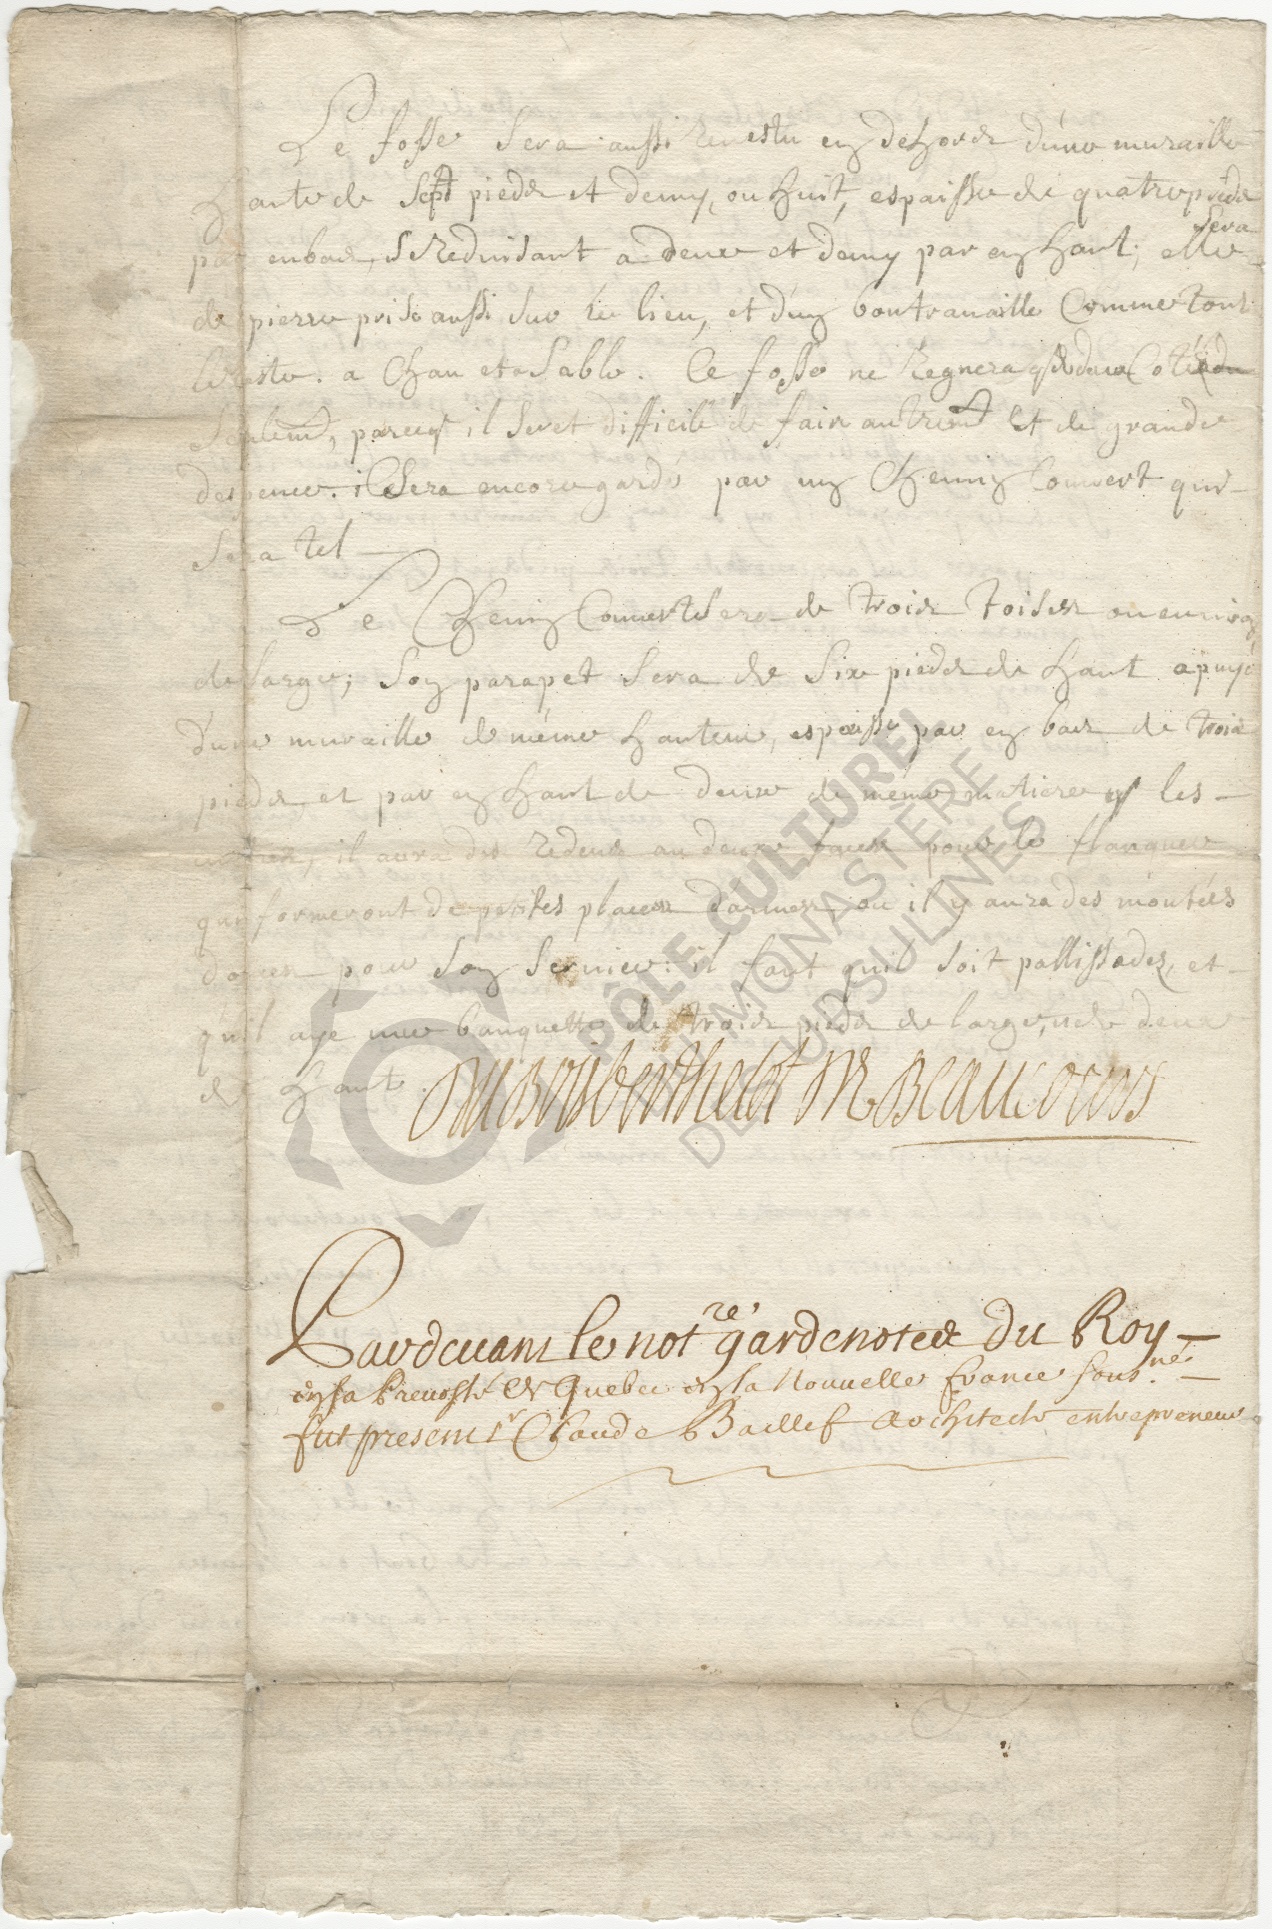 Le fossé sera aussi revestu en dehors d'une muraille
haute de sept pieds et demy, ou huit, espaisse de quatre pieds
par enbas, se reduisant a deux et demy par en haut; elle sera
de pierre prise aussi sur le lieu, et d'un bon travaille comme tout
le reste. a chau et a sable. Ce fossé ne regnera q deux cotés
seulemt, parceq il seret difficile de faire autremt et de grande
despence. il sera encore gardé par un chemin couvert qui
sera tel
Le chemin couvert sera de trois toises ou environ
de large; son parapet sera de six pieds de haut apuyé
d'une muraille de méme hauteur, espaisse par en bas de trois
pieds et par en haut de deux de méme matiere q les
autres, il aura des redens au deux faces pour le flanquer
qui formeront de petites places d'armes, ou il y aura des montées
douces pour son service: il faut qu'il soit pallissadez, et
qu'il aye une banquette de trois pieds de large, et de deux
de haut.
Dubois berthelot De Beaucours
Pardevant le notre gardenotes du Roy
en sa Prevosté de Quebec en la Nouvelle france sousné
fut present sr Claude Baillif architecte entrepreneur
PÔLE CULTUREL
DU MONASTÈRE
DES URSULINES